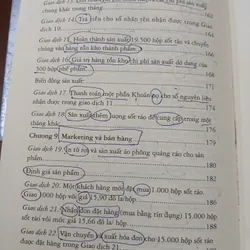 chung khác trong tháng.
160
Giao dịch 14. Trả tiền cho số nhân yêu nhận được trong Giao dịch
18
161
Giao dịch 15. Hoàn thành sản xuất 19.500 hộp sốt táo và
chuyển vào hàng tồn kho thành phẩm.
164
Giao dịch 16. Giá trị hàng tồn kho chi phí sản xuất dở dang của
500 hộp phế phẩm
168
Biến động sản xuất:
Giao dịch 17. Thanh toán một phần Khoản nợ cho số nguyên liệu
nhận được trong giao dịch 11
176
Giao dịch 18. Sản xuất thêm lượng sốt táo để cung cấp trong một
tháng khác.
176
Chương 9. Marketing và bán hàng
179
Giao dịch 19. In tờ rơi và sản phẩm phòng quảng cáo cho sản
phẩm.
181
Định giá sản phẩm
Giao dịch 20. Một khách hàng mới đặt mua 1.000 hộp sốt
Giao dịch 21. Nhận đơn đặt hàng (mua bằng tín dụng) 15.000
hộp sốt táo với mức giá 15,66 đô la/
188
Giao dịch 22. Vận chuyển và xuất hóa đơn cho 15.000 hộp sốt
táo đặt hàng trong Giao dịch 21